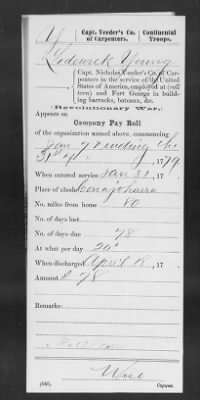 Y Capt. Veeder's Co. of Carpenters. Continental Troops.
Loderick Young
Capt. Nicholas Veeder's Co. of Car-
penters in the service of the United
States of America, employed at
and Fort George in build-
ing barracks, bateaux, &c.
Revolutionary War.
Appears on
Company Pay Roll
of the organization named above, commencing
Jan ending the
31st 1779.
When entered service Jan 31, 17
Place of abode Conajohara
No. miles from home 80
No. of days lost
No. of days due 78
At what per day 20
When discharged April 18, 17
Amount $ 78
Remarks:
Copyist.